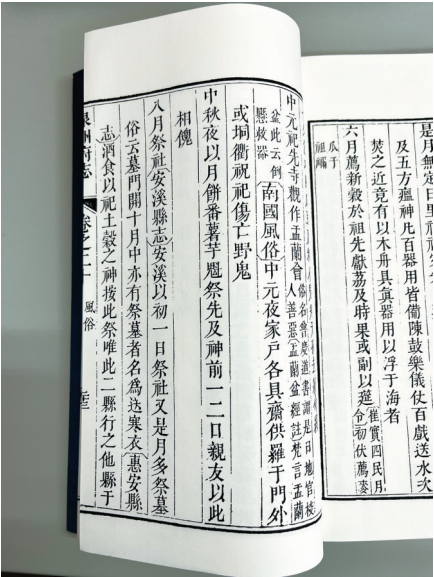 是月無定日里
及五方瘟神凡百器用皆備陳鼓樂儀仗百戲送水次
焚之近竟有以木舟具真器用以浮于海者
六月薦新穀於祖先獻荔及時果或副以
崔實四民月
令初伏薦麥
瓜于
祖禰
中元祀先寺觀作盂蘭會
俗名曾慶道書謂是日地官校
人善惡(盂蘭盆經註)梵言盂蘭
盆此云倒
懸救器
(南國風俗)中元夜家戶各具齋供羅于門外
或垌衢祝祀傷亡野鬼
中秋夜以月餅番薯芋魁祭先及神前一二日親友以此
相餽
八月祭社(安溪縣志)安溪以初一日祭社又是月多祭墓
俗云墓門開十月中亦有祭墓者名為送寒衣(惠安縣
志)酒食以祀土穀之神按此祭唯此二縣行之他縣于
泉州府志 卷之二十 風俗